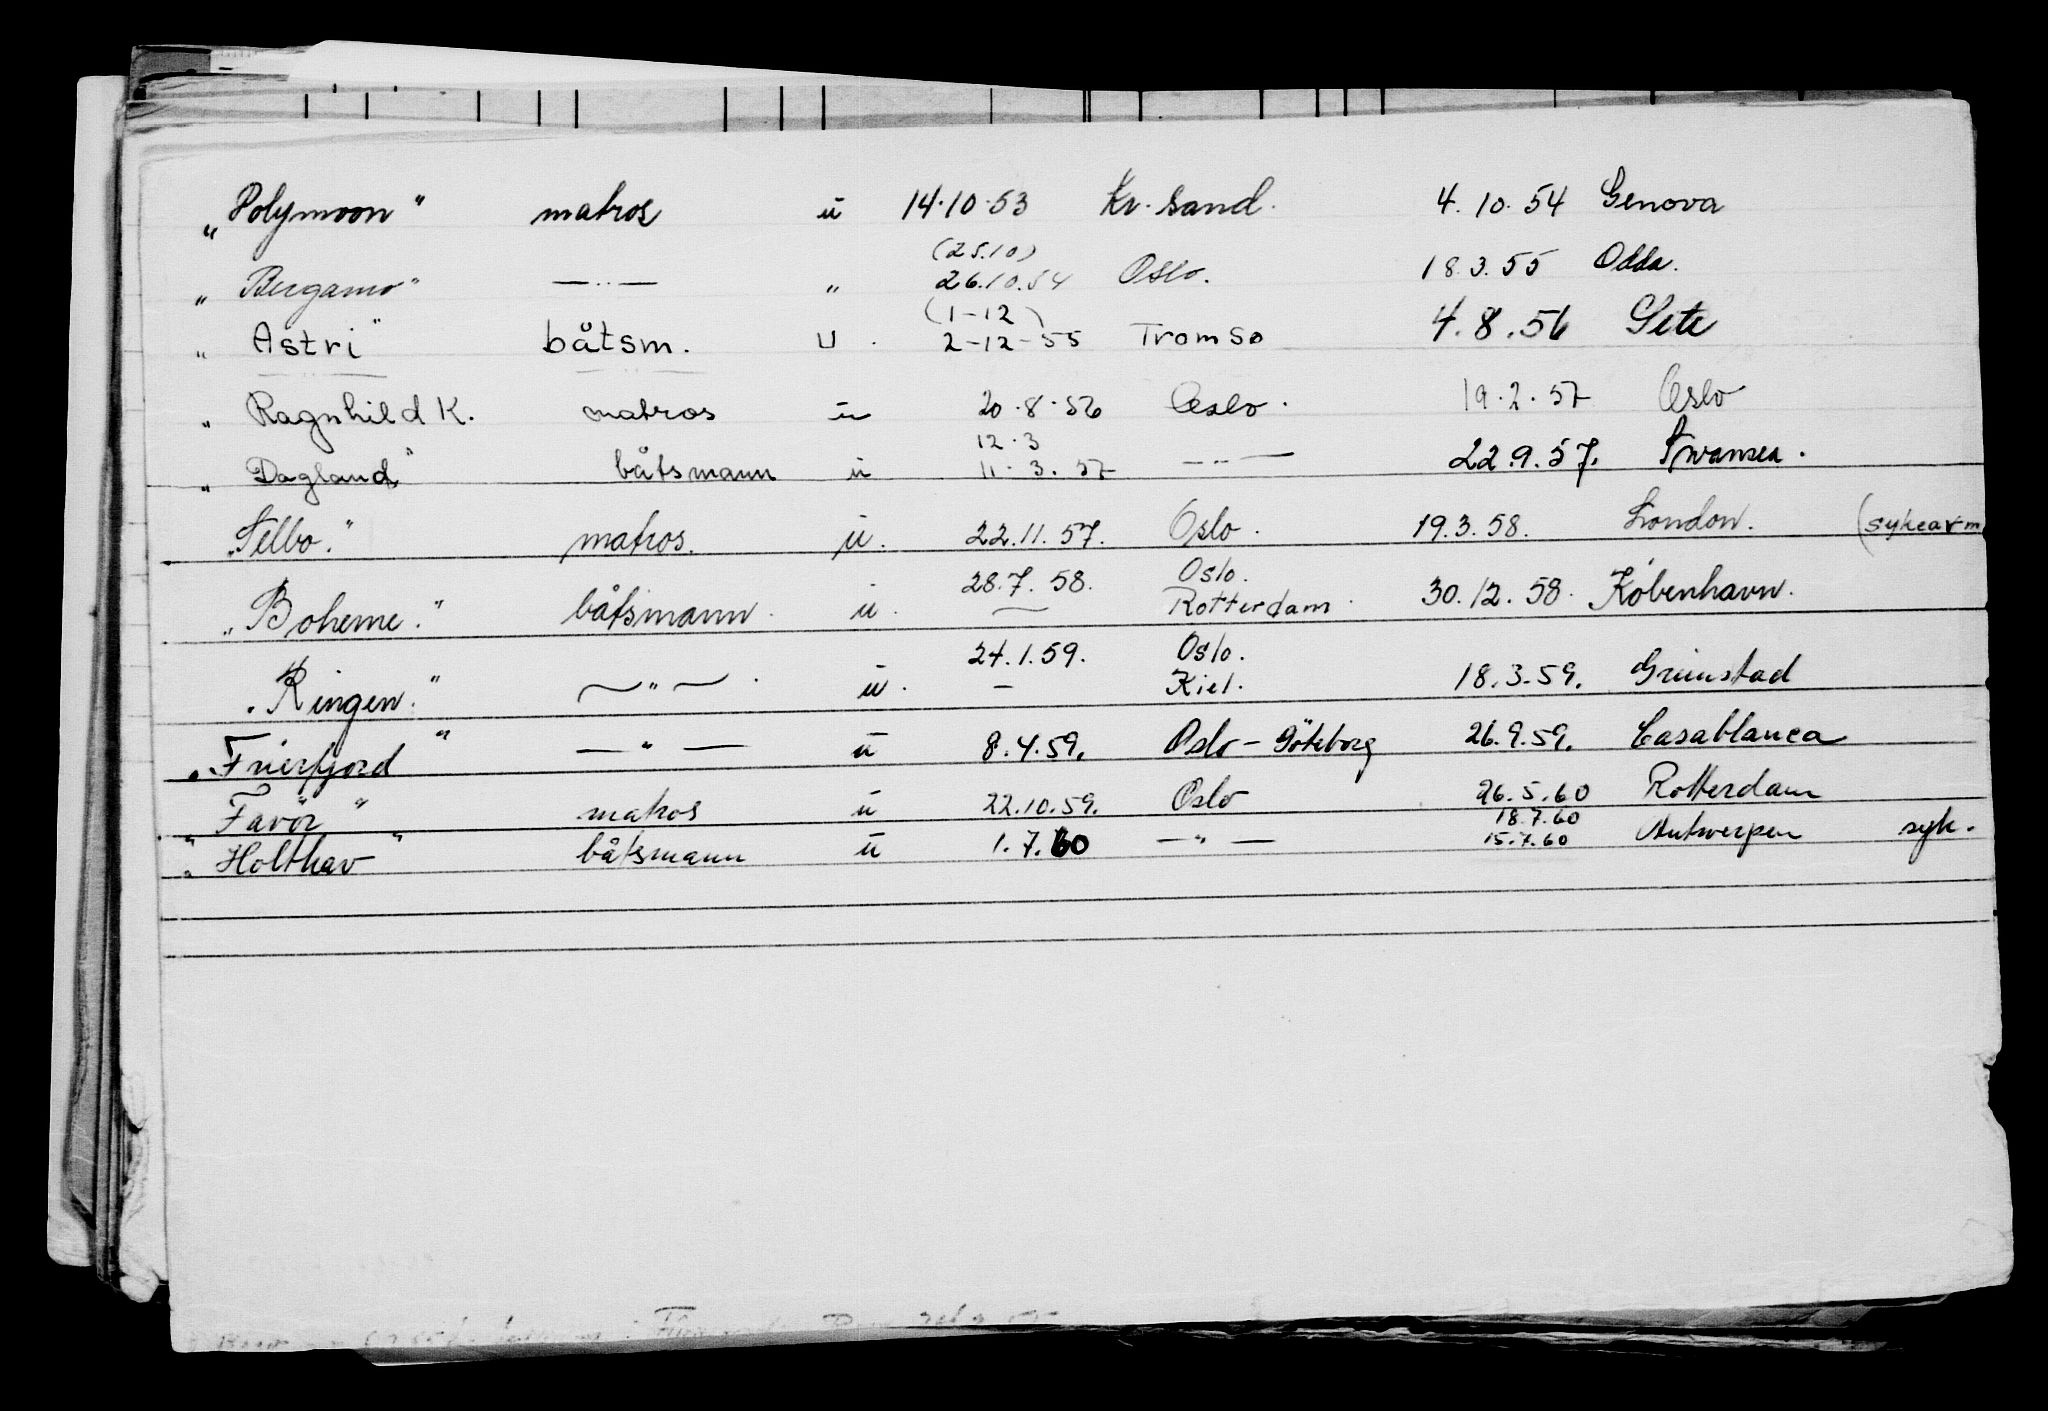 „Polymoon" matros ū 14.10.53 Kr.sand. 4.10.54 Genova
(25.10)
„Bergamo" —..— " 26.10.54 Oslo. 18.3.55 Odda.
(1-12)
„Astri" båtsm. u. 2-12-55 Tromsø 4.8.56 Sete
„Ragnhild K. matros ū 20.8.56 Oslo. 19.2.57 Oslo
12.3
„Dagland" båtsmann ū 11.3.57 —..— 22.9.57. Swansea.
„Selbo." matros. ū. 22.11.57. Oslo. 19.3.58. London. (sykearm
28.7.58. Oslo.
„Boheme." båtsmann. ū. — Rotterdam. 30.12.58. København.
24.1.59. Oslo.
„Ringen." —"—. ū. — Kiel. 18.3.59. Grimstad
„Frierfjord" —"— ū 8.4.59. Oslo - Göteborg 26.9.59. Casablanca
„Favör" matros ū 22.10.59. Oslo 26.5.60 Rotterdam
18.7.60
„Holthav" båtsmann ū 1.7.60 —"— 15.7.60 Antwerpen syk.